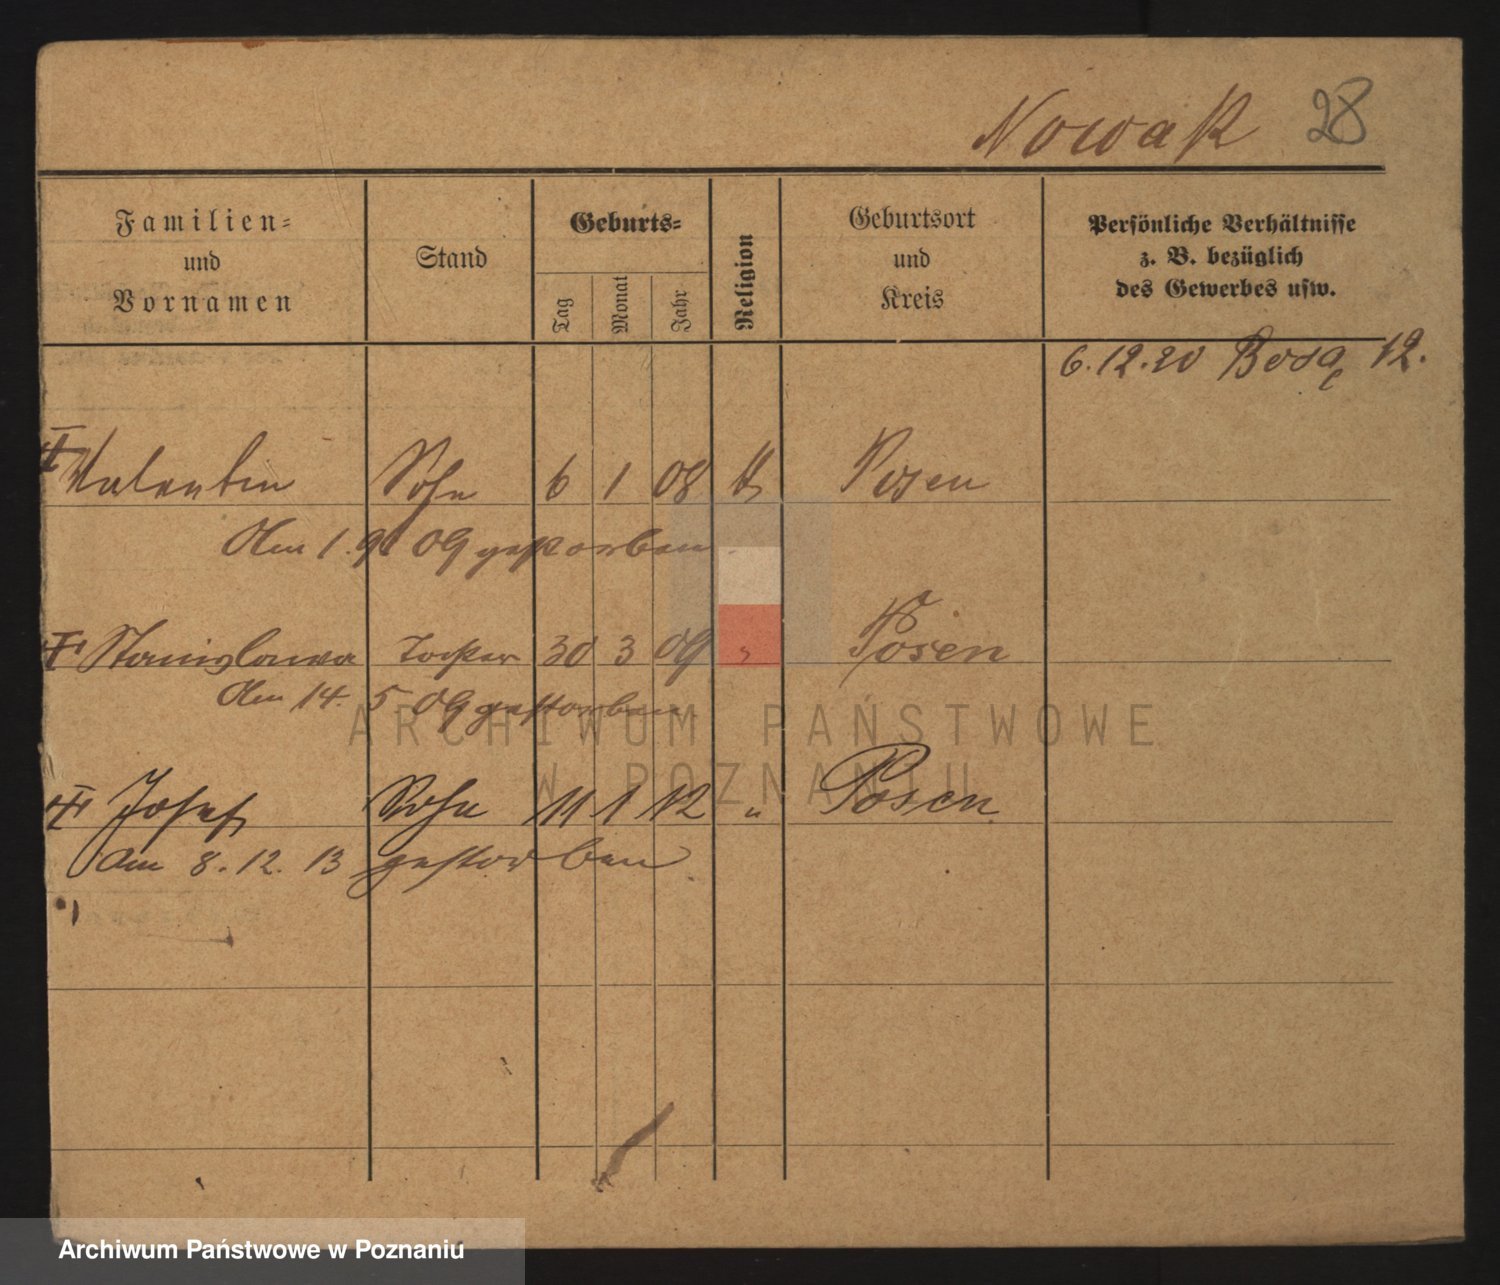 Nowak 28
Familien-
und
Vornamen
Stand
Geburts-
Tag
Monat
Jahr
Religion
Geburtsort
und
Kreis
Persönliche Verhältnisse
z. B. bezüglich
des Gewerbes usw.
6.12.20 12.
Valentin Sohn 6 1 08 Posen
Am 1. 9 09 gestorben.
Stanislawa Tochter 30 3 09 " Posen
Am 14. 5 09 gestorben
Josef Sohn 11 1 12 " Posen
Am 8. 12. 13 gestorben
ARCHIWUM PAŃSTWOWE
W POZNANIU
Archiwum Państwowe w Poznaniu